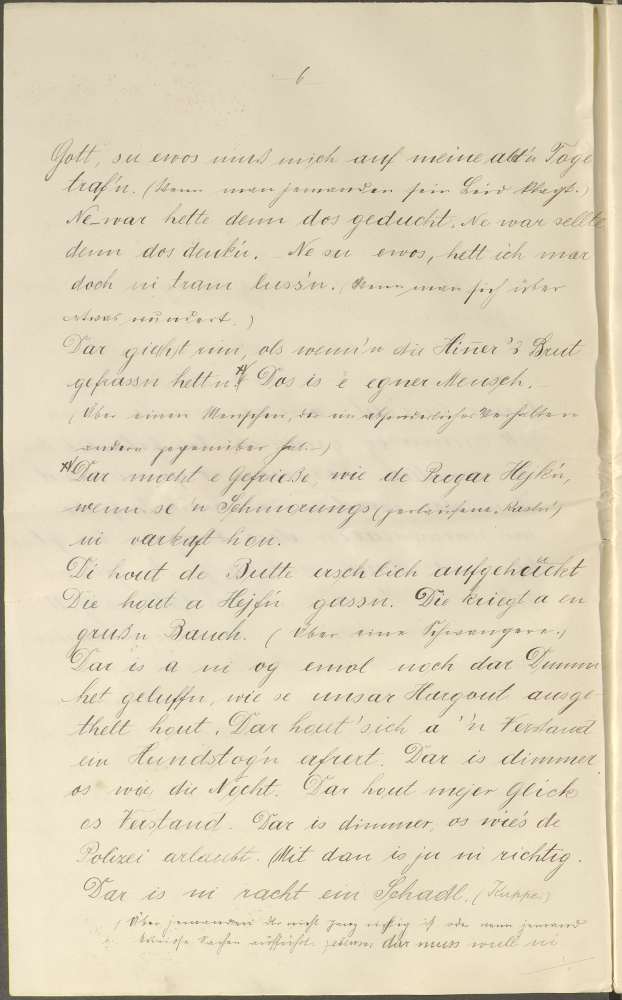 6
Gott, su ewos muß mich auf meine alt'n Toge
traf'n. (Wenn man jemanden sein Leid klagt.)
Ne war hette denn dos geducht. Ne war sellte
denn dos denk'n. Ne su ewos, hett ich mar
doch ni tram luss'n. (Wenn man sich über
etwas wundert.)
Dar gieht rim, ols wenn'n die Hinner's Brut
gefrassn hett'n. Dos is e egner Mensch.
(Über einen Menschen, der ein absonderliches Verhalten
andern gegenüber hat.)
Dar mocht e Gefrieße, wie de Progar Hejk'n,
wenn se 'n Schmorungs
ni varkaft hon.
Di hout de Butte urschlich aufgehuckt
Die hout a Hejf'n gassn. Die kriegt a en
gruß'n Bauch. (Über eine Schwangere.)
Dar is a ni og emol noch dar Dumm-
het geluffn, wie se unsar Hargout ausge-
thelt hout. Dar hout'sich a 'n Verstand
ein Hundstog'n afrert. Dar is dimmer
os wie die Nocht. Dar hout mejer Glick
os Verstand. Dar is dimmer, os wie's de
Polizei arlaubt. (Mit dan is ju ni richtig.
Dar is ni racht ein Schadl. (Kuppe.)
(Über jemanden der nicht ganz richtig ist oder wenn jemand
Sachen aufführt. dar muss wull ni